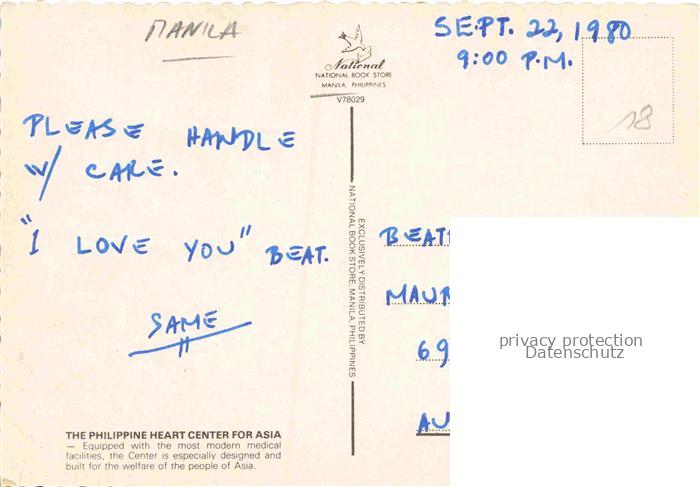 MANILA
National
NATIONAL BOOK STORE
MANILA, PHILIPPINES
V78029
SEPT. 22, 1980
9:00 P.M.
18
PLEASE HANDLE
W/ CARE.
"I LOVE YOU" BEAT.
SAME
EXCLUSIVELY DISTRIBUTED BY
NATIONAL BOOK STORE, MANILA, PHILIPPINES
BEAT
MAUR
69
AU
privacy protection
Datenschutz
THE PHILIPPINE HEART CENTER FOR ASIA
— Equipped with the most modern medical
facilities, the Center is especially designed and
built for the welfare of the people of Asia.